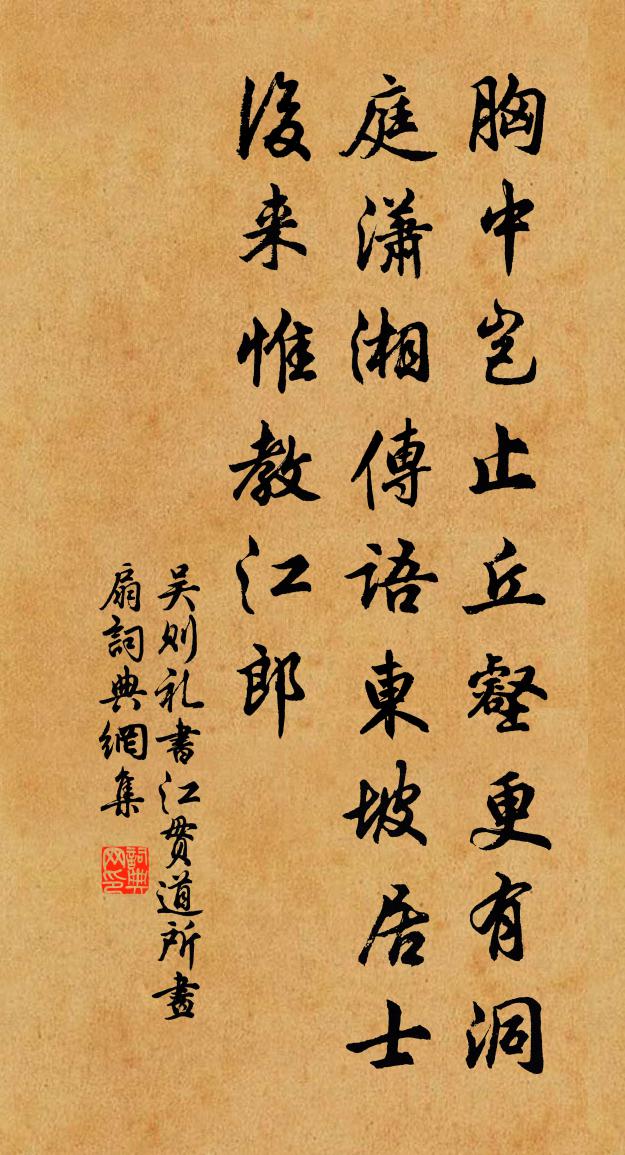 胸中岂止丘壑更有洞
庭瀟湘傳語東坡居士
後来惟教江郎
吴则礼書江贯道所畫
扇詞典網集
詞典网印